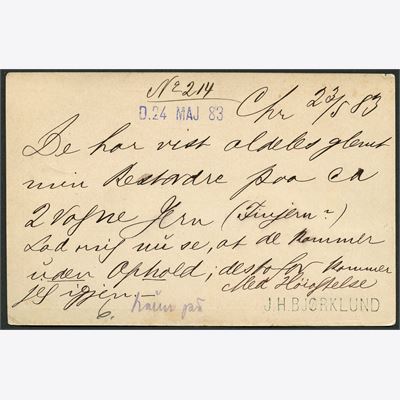 No 214
D.24 MAJ 83
Chr 23/5 83
De har vist aldeles glemt
min Restordre paa ca
2 Vogne Jern (Finjern?)
Lad mig nu se, at de kommer
uden Ophold; desto før kommer
jeg igjen.—
Med Høiagtelse
J.H.BJØRKLUND
6.